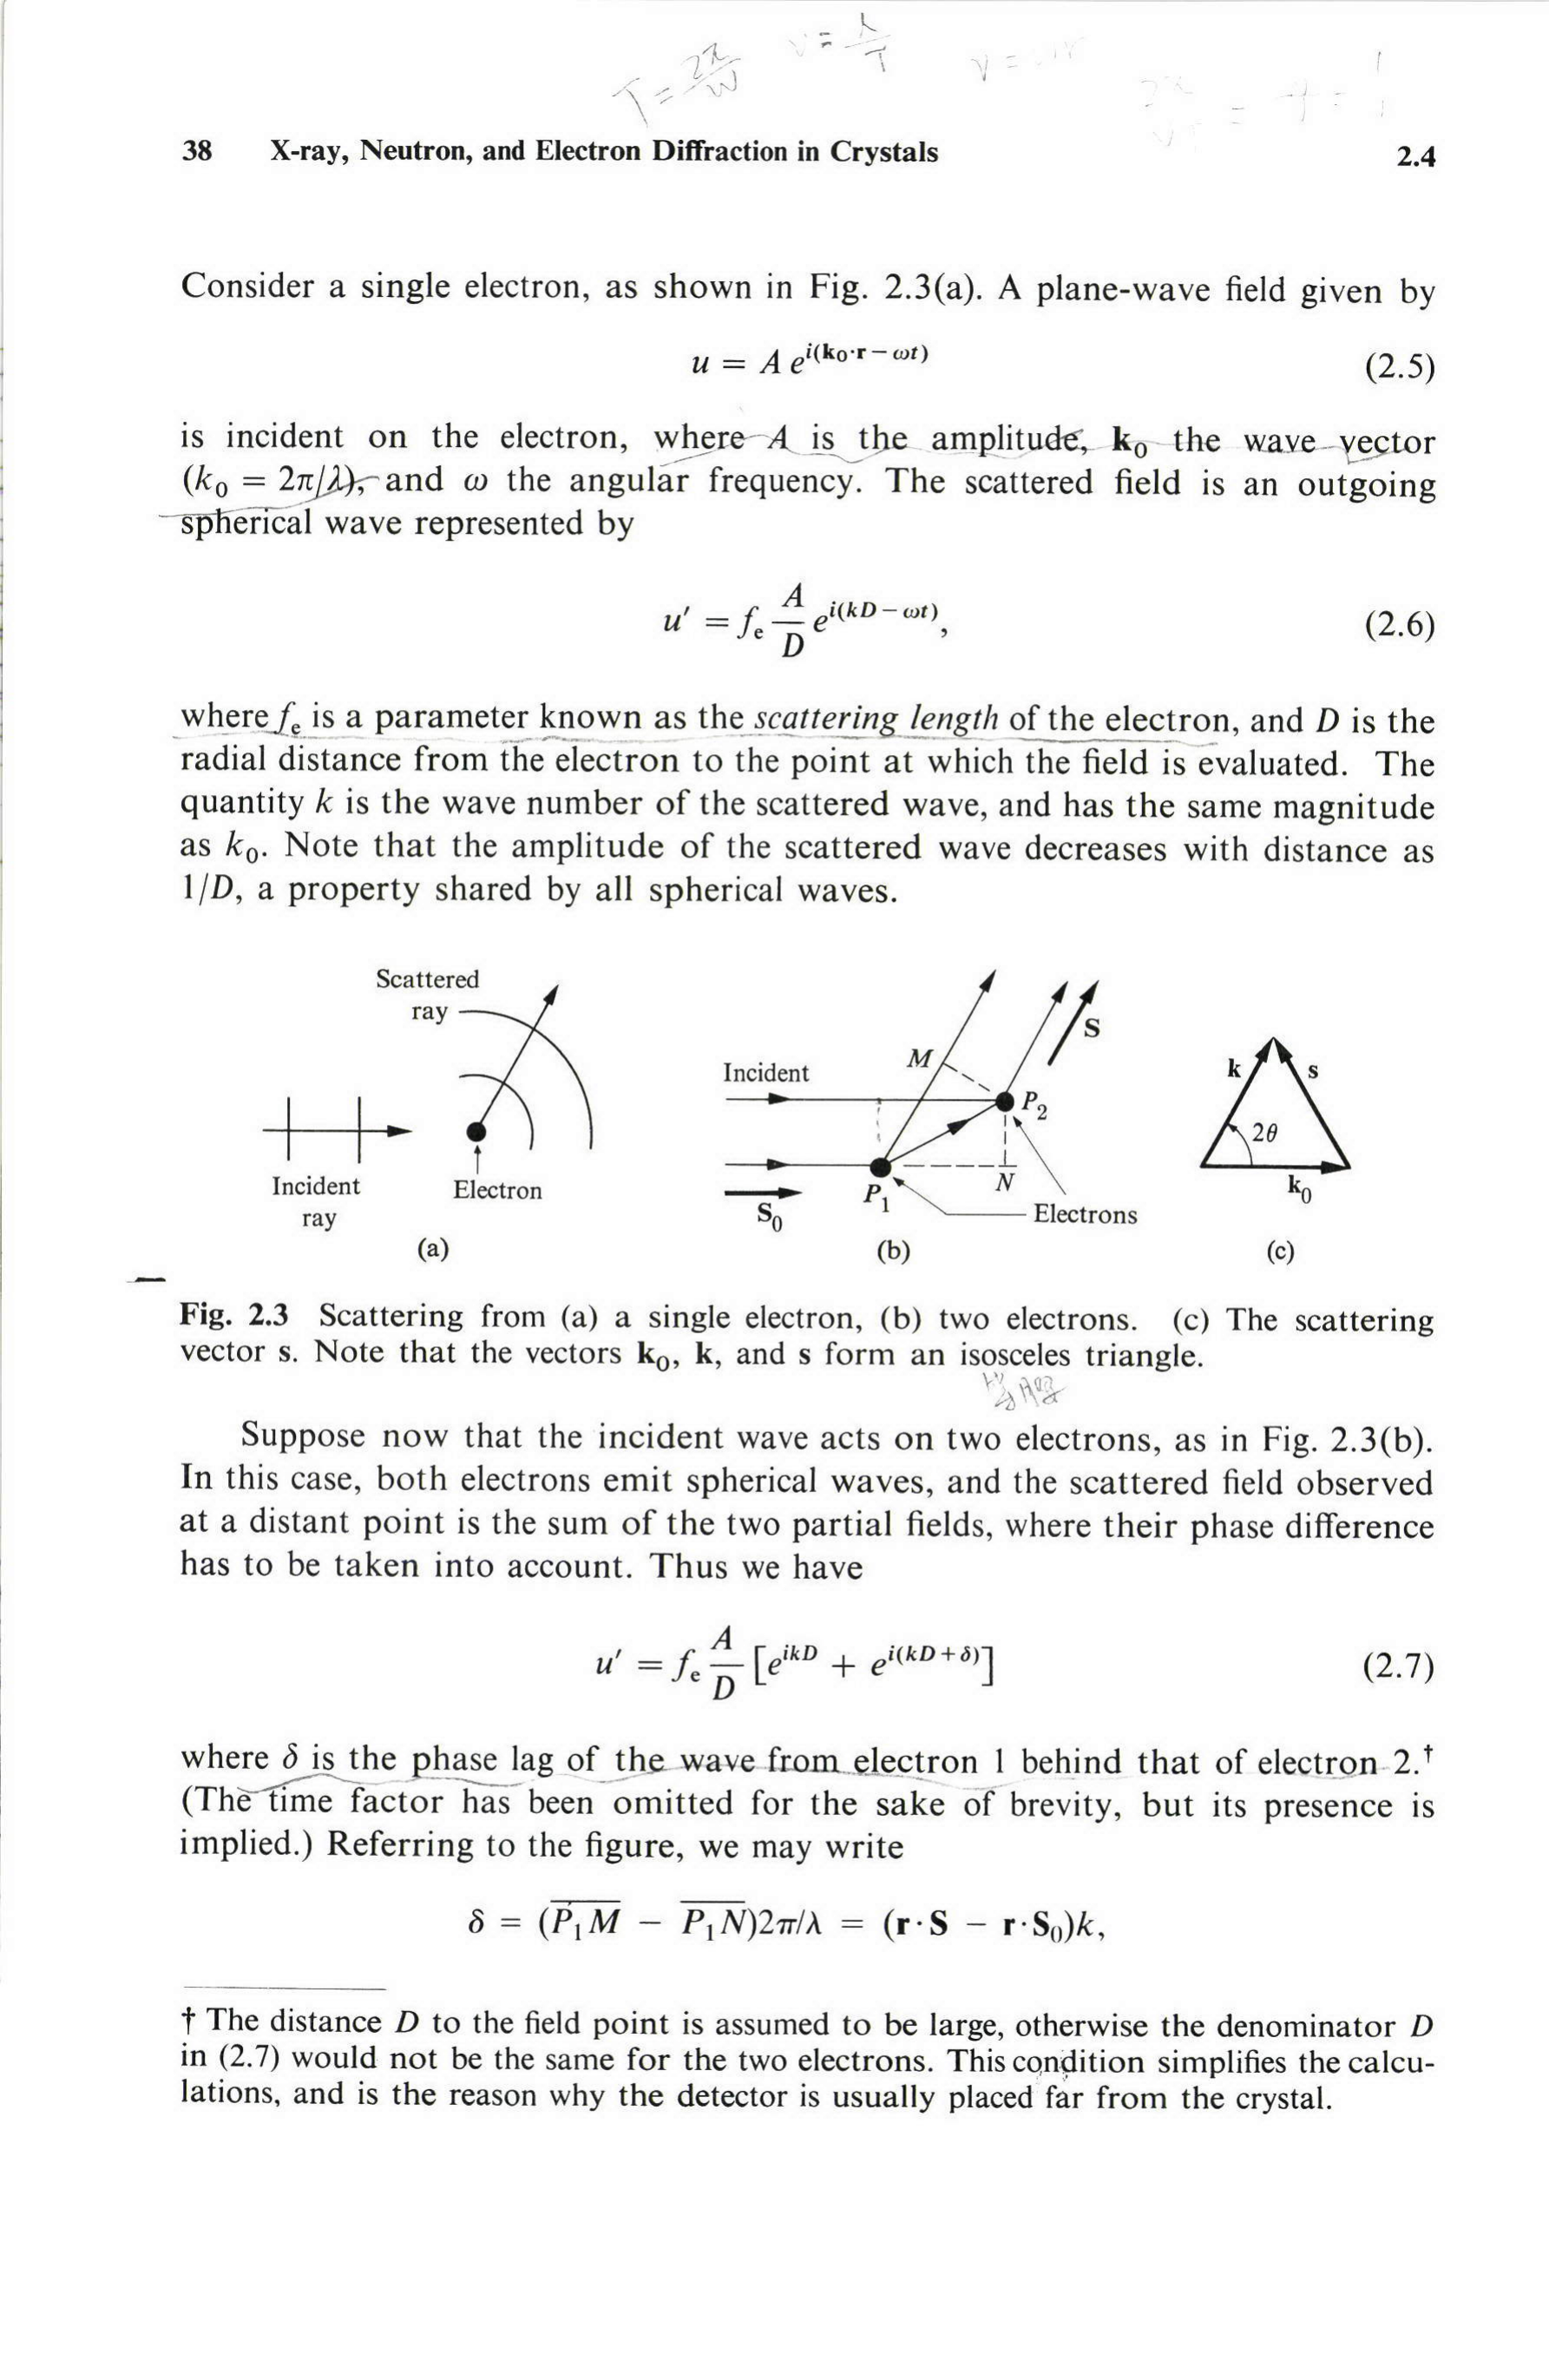 T = 2π/ω v = λ/T
38 X-ray, Neutron, and Electron Diffraction in Crystals 2.4
Consider a single electron, as shown in Fig. 2.3(a). A plane-wave field given by
u = A e^{i(k₀·r − ωt)} (2.5)
is incident on the electron, where A is the amplitude, k₀ the wave vector
(k₀ = 2π/λ), and ω the angular frequency. The scattered field is an outgoing
spherical wave represented by
u′ = fₑ A/D e^{i(kD − ωt)}, (2.6)
where fₑ is a parameter known as the scattering length of the electron, and D is the
radial distance from the electron to the point at which the field is evaluated. The
quantity k is the wave number of the scattered wave, and has the same magnitude
as k₀. Note that the amplitude of the scattered wave decreases with distance as
1/D, a property shared by all spherical waves.
Scattered
ray
Incident
ray
Electron
(a)
Incident
M
S
P₂
P₁
N
S₀
Electrons
(b)
k
s
2θ
k₀
(c)
Fig. 2.3 Scattering from (a) a single electron, (b) two electrons. (c) The scattering
vector s. Note that the vectors k₀, k, and s form an isosceles triangle.
Suppose now that the incident wave acts on two electrons, as in Fig. 2.3(b).
In this case, both electrons emit spherical waves, and the scattered field observed
at a distant point is the sum of the two partial fields, where their phase difference
has to be taken into account. Thus we have
u′ = fₑ A/D [e^{ikD} + e^{i(kD + δ)}] (2.7)
where δ is the phase lag of the wave from electron 1 behind that of electron 2.†
(The time factor has been omitted for the sake of brevity, but its presence is
implied.) Referring to the figure, we may write
δ = (P̅₁M̅ − P̅₁N̅)2π/λ = (r·S − r·S₀)k,
† The distance D to the field point is assumed to be large, otherwise the denominator D
in (2.7) would not be the same for the two electrons. This condition simplifies the calcu-
lations, and is the reason why the detector is usually placed far from the crystal.